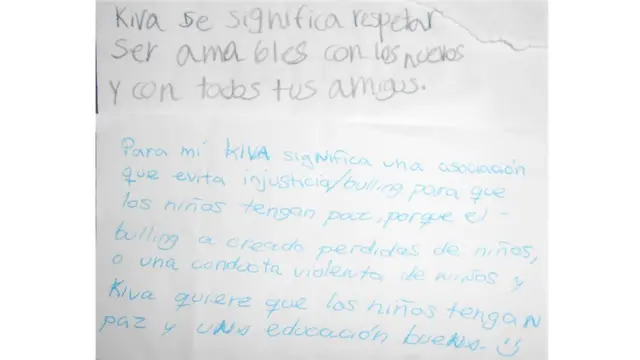 Kiva se significa respetar
Ser amables con los nuevos
y con todos tus amigos.
Para mi KIVA significa una asociación
que evita injusticia/bulling para que
los niños tengan paz, porque el -
bulling a creado perdidas de niños,
o una conducta violenta de niños y
Kiva quiere que los niños tengan
paz y una educación buena. :)